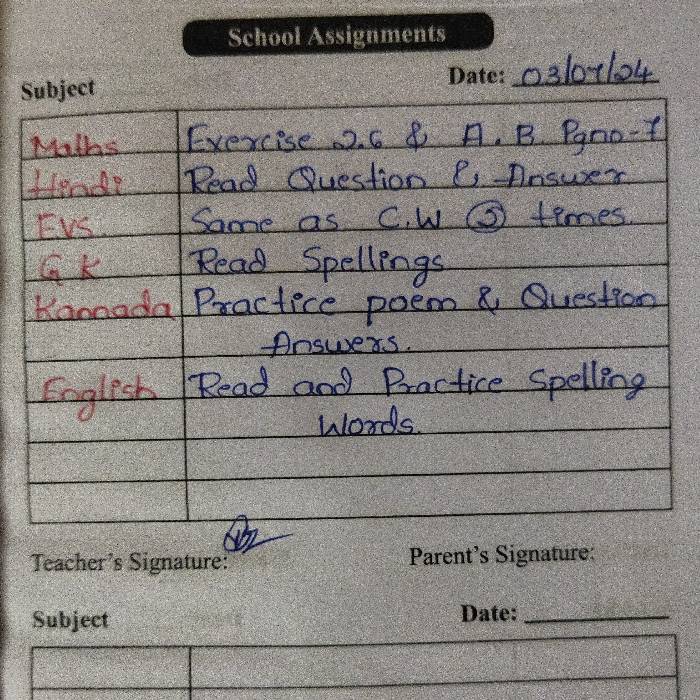 School Assignments
Subject Date: 03/07/24
Maths Exercise 2.6 & A. B Pgno-7
Hindi Read Question & Answer
EVS Same as C.W ③ times.
G K Read Spellings
Kannada Practice poem & Question
Answers.
English Read and Practice Spelling
Words.
Teacher's Signature: Parent's Signature:
Subject Date: